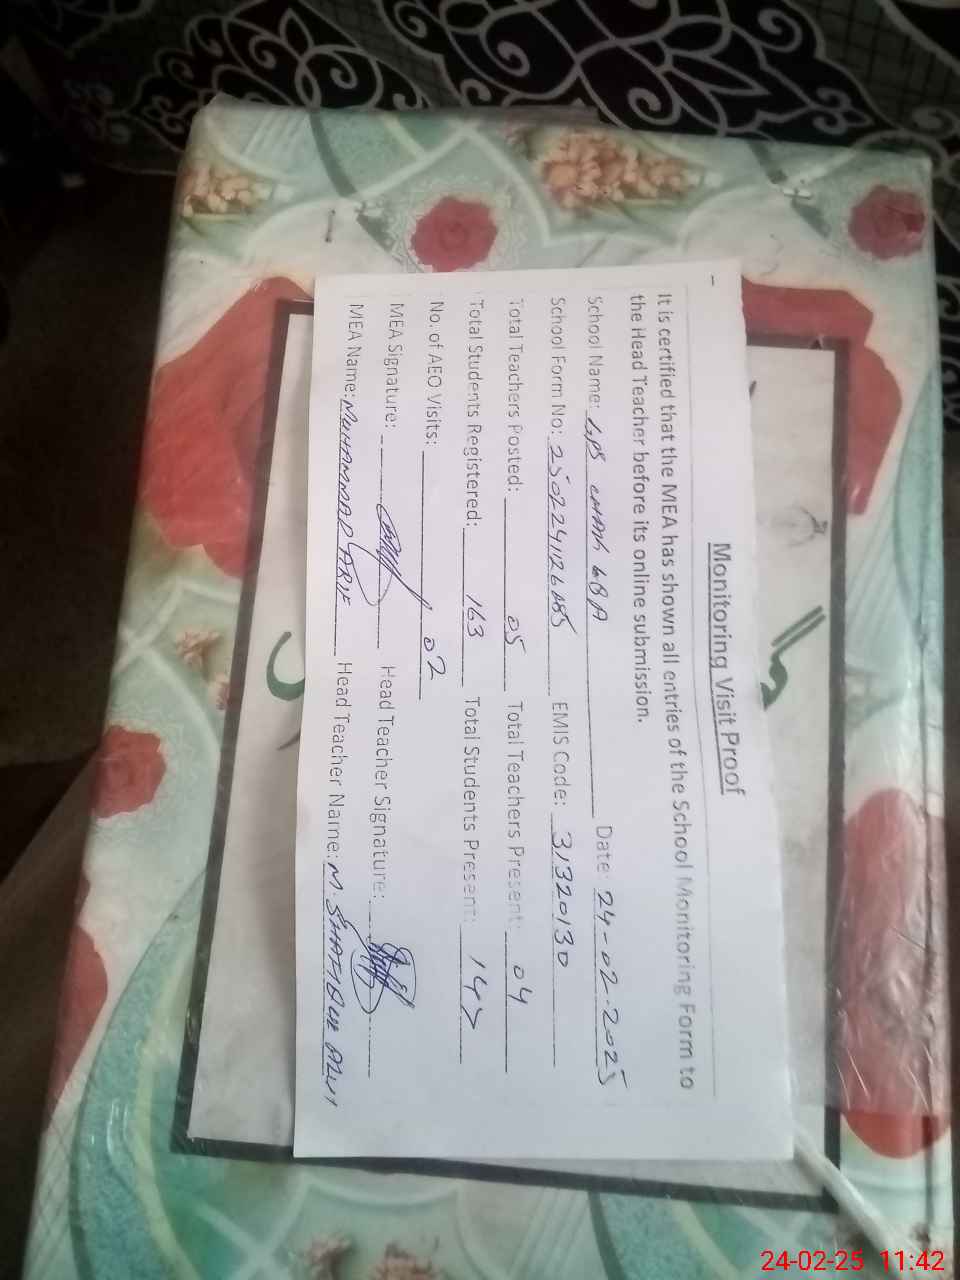 Monitoring Visit Proof
It is certified that the MEA has shown all entries of the School Monitoring Form to
the Head Teacher before its online submission.
School Name: GPS CHAH GBA Date: 24-02-2025
School Form No: EMIS Code: 31320130
Total Teachers Posted: 05 Total Teachers Present: 04
Total Students Registered: 163 Total Students Present: 147
No. of AEO Visits: 02
MEA Signature: Head Teacher Signature:
MEA Name: MUHAMMAD ARIF Head Teacher Name: M. SHAFIQUE
24-02-25 11:42